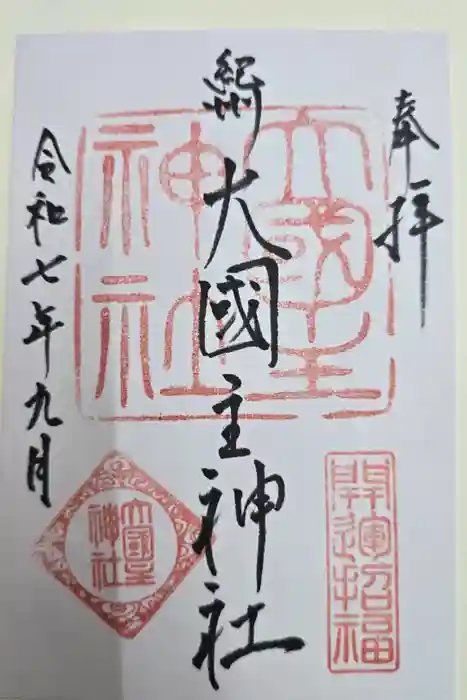 奉拝
紀州 大國主神社
令和七年九月
大國主神社
開運招福
大國主神社